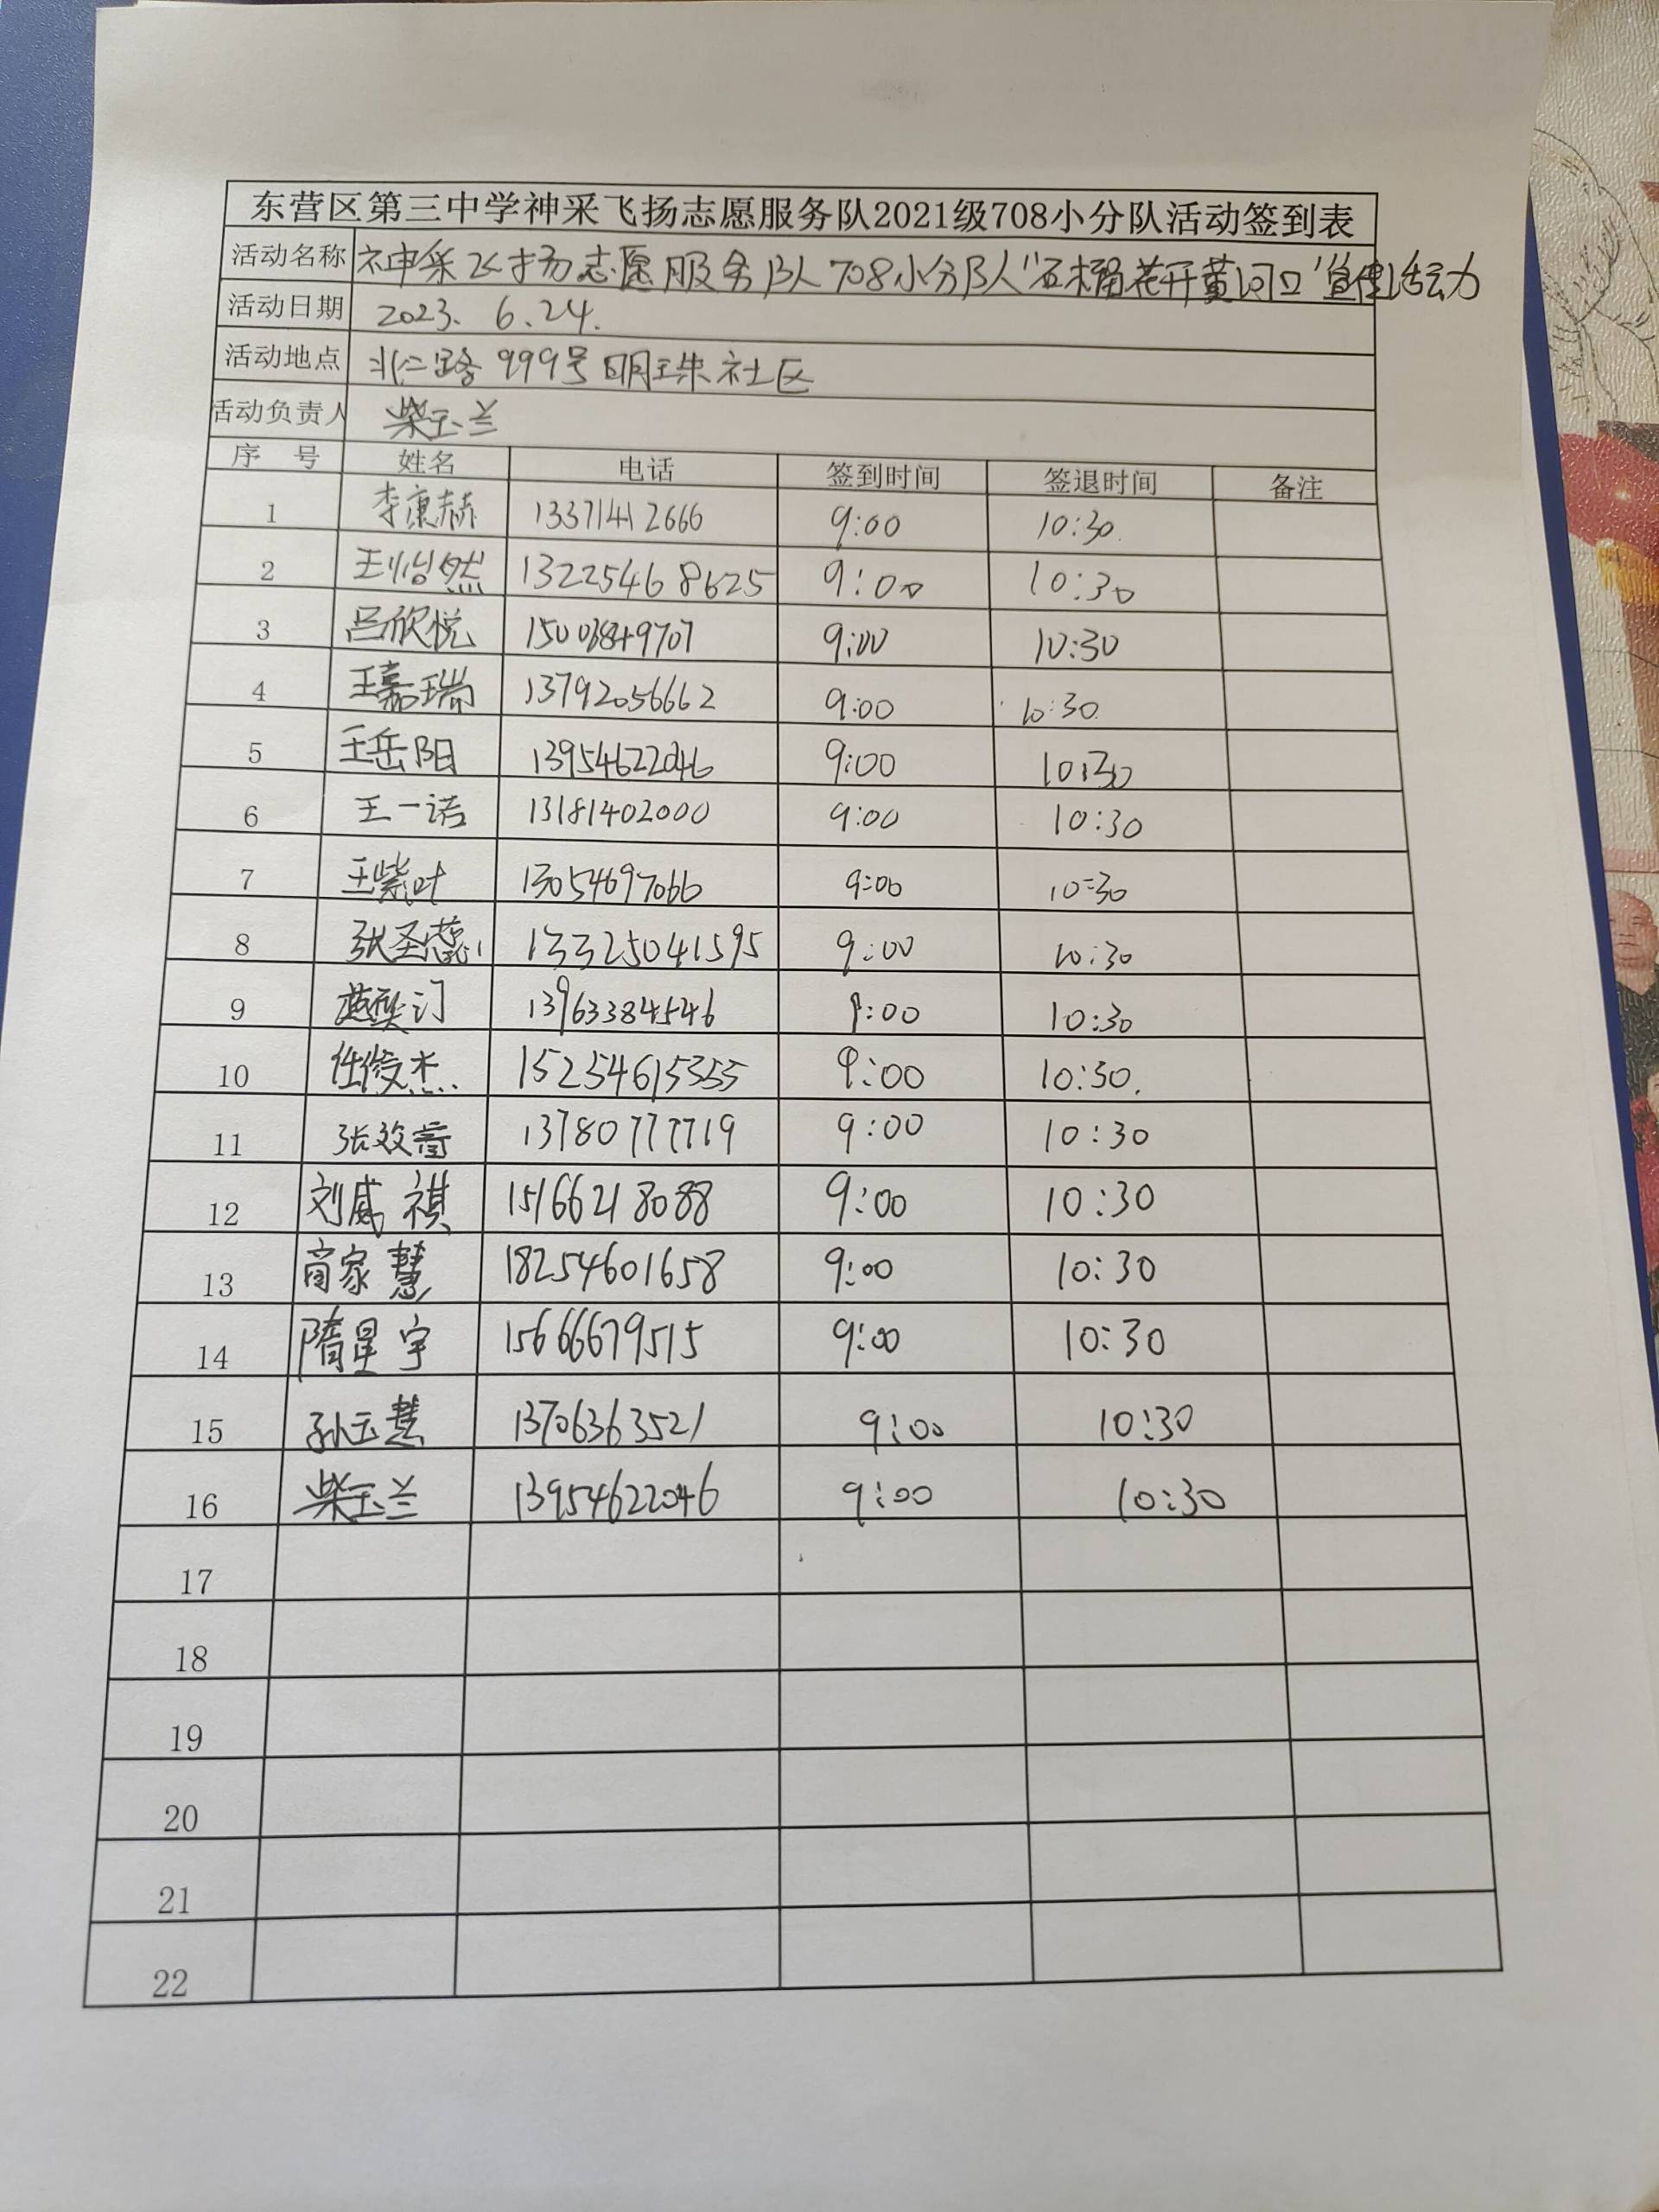 东营区第三中学神采飞扬志愿服务队2021级708小分队活动签到表
活动名称 神采飞扬志愿服务队708小分队"石榴花开黄河口"宣传活动
活动日期 2023. 6.24.
活动地点 北二路999号明珠社区
活动负责人 柴玉兰
序 号 姓名 电话 签到时间 签退时间 备注
1 李康赫 13371412666 9:00 10:30
2 王怡然 13225468625 9:00 10:30
3 吕欣悦 9:00 10:30
4 王嘉瑞 13792056662 9:00 10:30
5 王岳阳 13954622046 9:00 10:30
6 王一诺 13181402000 9:00 10:30
7 王紫叶 13054697066 9:00 10:30
8 张圣蕊 13325041595 9:00 10:30
9 13963384546 9:00 10:30
10 任俊杰 15254615355 9:00 10:30.
11 13780777719 9:00 10:30
12 刘威祺 15166218088 9:00 10:30
13 商家慧 18254601658 9:00 10:30
14 隋星宇 15666679515 9:00 10:30
15 孙玉慧 13706363521 9:00 10:30
16 柴玉兰 13954622046 9:00 10:30
17
18
19
20
21
22